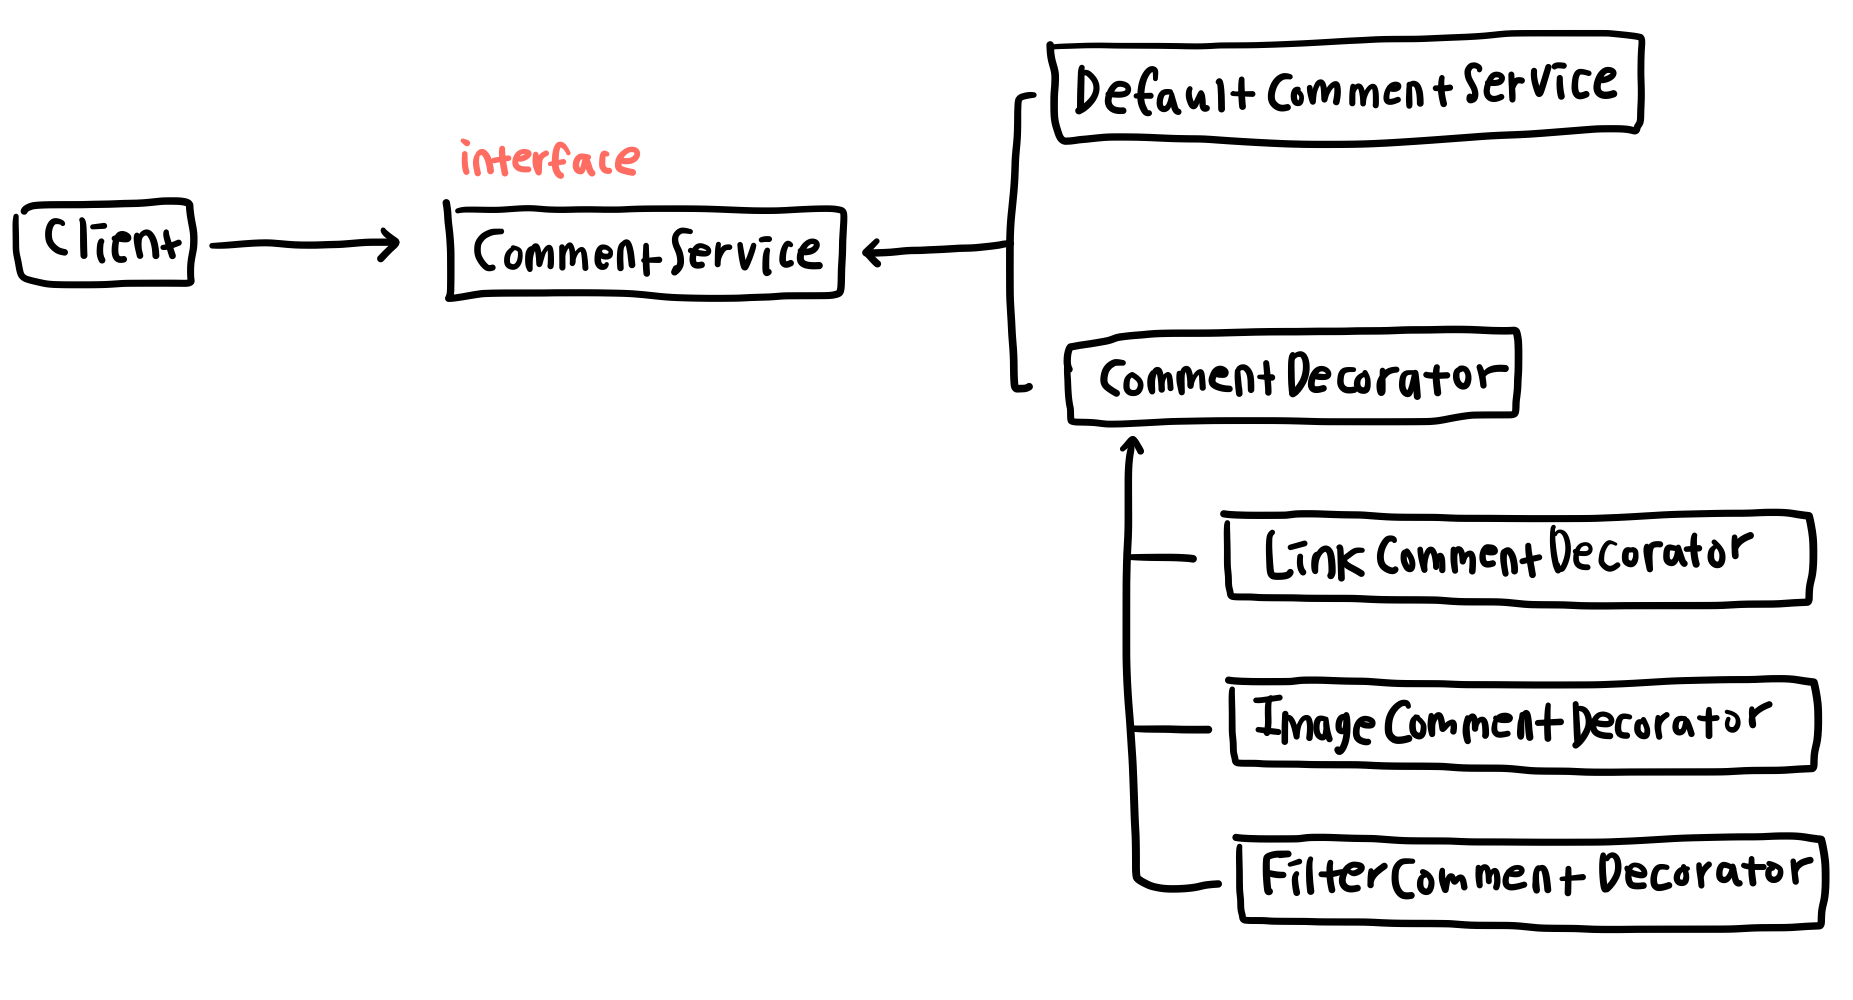 DefaultCommentService
interface
Client
CommentService
CommentDecorator
LinkCommentDecorator
ImageCommentDecorator
FilterCommentDecorator